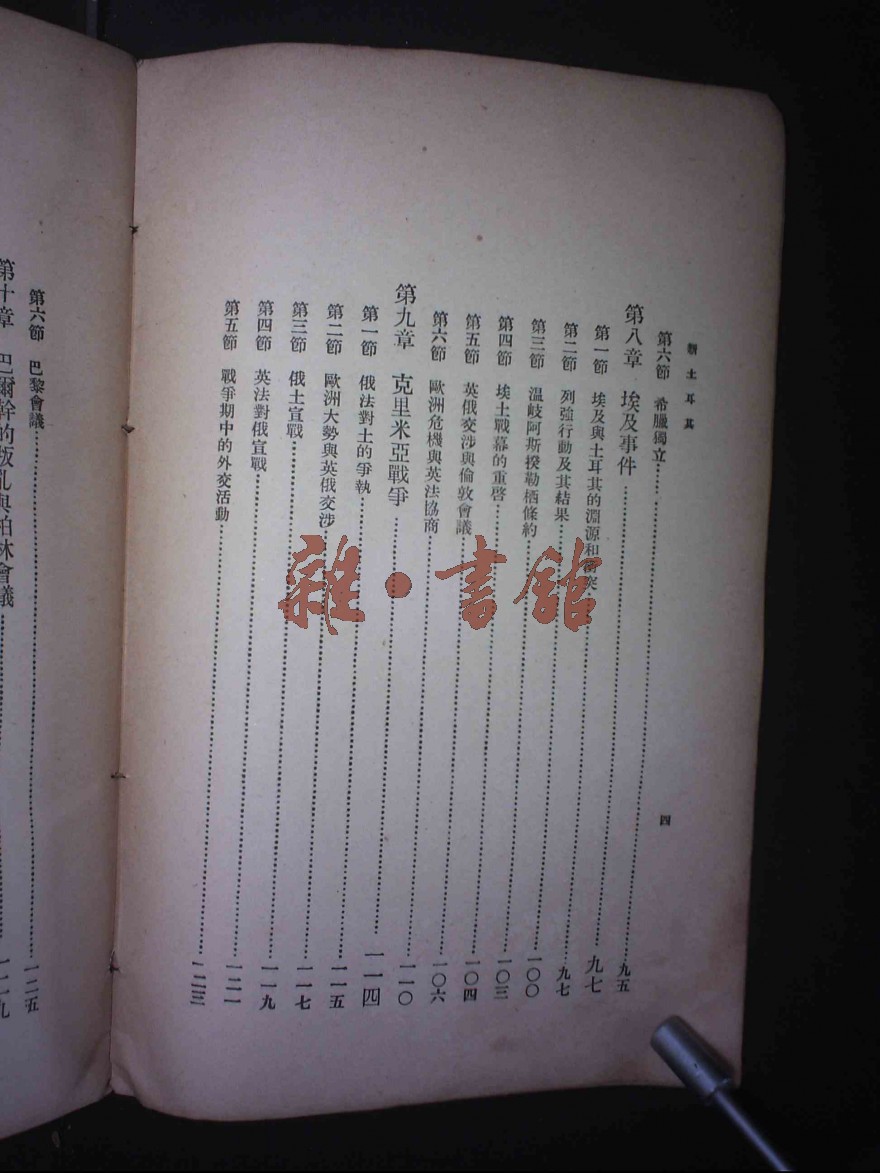 新土耳其
四
第六節 希臘獨立……九五
第八章 埃及事件……九七
第一節 埃及與土耳其的淵源和衝突……九七
第二節 列強行動及其結果……一〇〇
第三節 溫岐阿斯揆勒栖條約……一〇三
第四節 埃土戰幕的重啓……一〇四
第五節 英俄交涉與倫敦會議……一〇六
第六節 歐洲危機與英法協商……一一〇
第九章 克里米亞戰爭……一一四
第一節 俄法對土的爭執……一一五
第二節 歐洲大勢與英俄交涉……一一七
第三節 俄土宣戰……一一九
第四節 英法對俄宣戰……一二一
第五節 戰爭期中的外交活動……一二三
第六節 巴黎會議……一二五
第十章 巴爾幹的與柏林會議……一二九
雜·書館